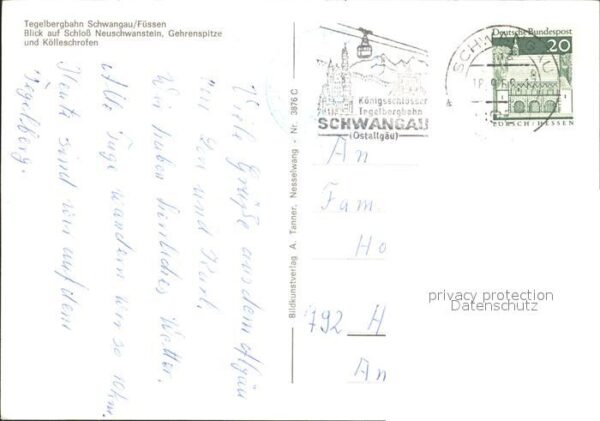 Tegelbergbahn Schwangau/Füssen
Blick auf Schloß Neuschwanstein, Gehrenspitze
und Kölleschrofen
Viele Grüße aus dem Allgäu
von Zen und Karl.
Wir haben herrliches Wetter.
Alle Tage wandern wir so 10 km.
Heute sind wir auf dem
Tegelberg.
Bildkunstverlag A. Tanner, Nesselwang - Nr. 3876 C
Königsschlösser
Tegelbergbahn
SCHWANGAU
(Ostallgäu)
SCHWANGAU
Deutsche Bundespost
20
LORSCH/HESSEN
An
Fam
Ho
792 H
An
privacy protection
Datenschutz